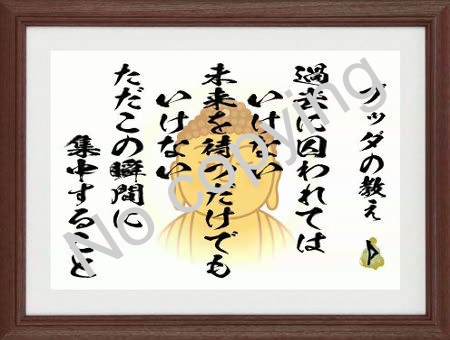 ブッダの教え
過去に囚われては
いけない
未来を待つだけでも
いけない
ただこの瞬間に
集中すること
No copying